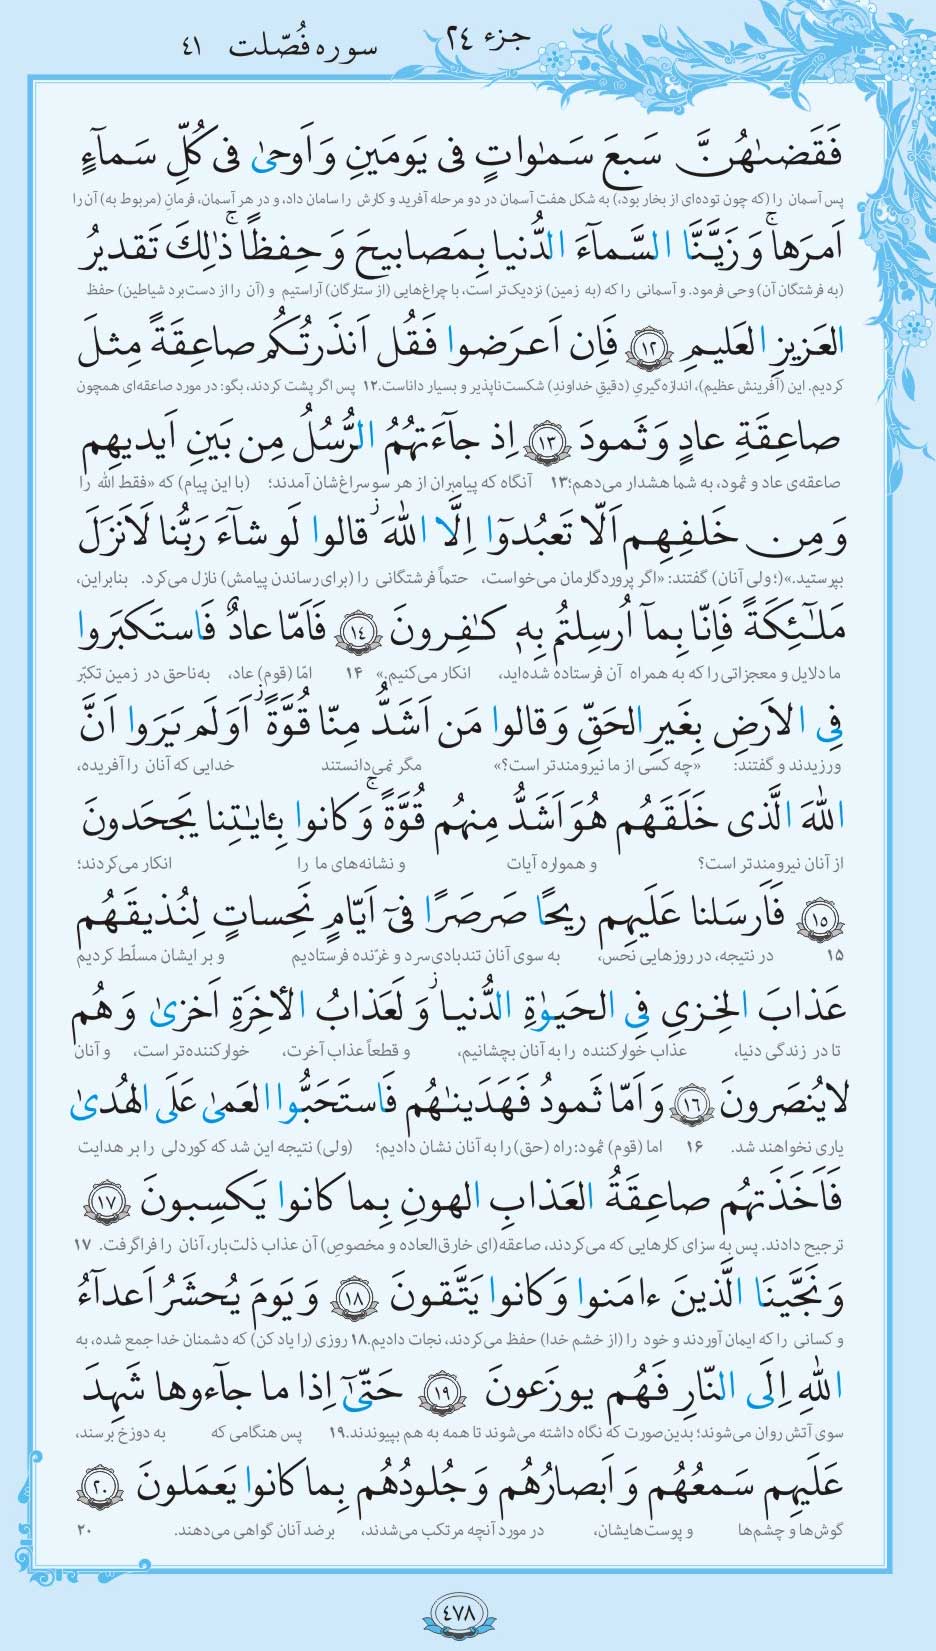 جزء ۲۴
سوره فُصّلت ۴۱
فَقَضىٰهُنَّ سَبعَ سَمٰواتٍ فی یَومَینِ وَ اَوحیٰ فی کُلِّ سَمآءٍ
پس آسمان را (که چون توده‌ای از بخار بود،) به شکل هفت آسمان در دو مرحله آفرید و کارش را سامان داد، و در هر آسمان، فرمانِ (مربوط به) آن را
اَمرَها ۚ وَ زَیَّنَّا السَّمآءَ الدُّنیا بِمَصابیحَ وَ حِفظًا ۚ ذٰلِكَ تَقدیرُ
(به فرشتگان آن) وحی فرمود. و آسمانی را که (به زمین) نزدیک‌تر است، با چراغ‌هایی (از ستارگان) آراستیم و (آن را از دست‌برد شیاطین) حفظ
العَزیزِ العَلیمِ ﴿۱۲﴾ فَاِن اَعرَضوا فَقُل اَنذَرتُکُم صاعِقَةً مِثلَ
کردیم. این (آفرینش عظیم)، اندازه‌گیریِ (دقیقِ خداوندِ) شکست‌ناپذیر و بسیار داناست.۱۲ پس اگر پشت کردند، بگو: در مورد صاعقه‌ای همچون
صاعِقَةِ عادٍ وَ ثَمودَ ﴿۱۳﴾ اِذ جآءَتهُمُ الرُّسُلُ مِن بَینِ اَیدیهِم
صاعقه‌ی عاد و ثمود، به شما هشدار می‌دهم؛۱۳ آنگاه که پیامبران از هر سو سراغ‌شان آمدند؛ (با این پیام) که «فقط الله را
وَ مِن خَلفِهِم اَلّا تَعبُدوٓا اِلَّا اللهَ ۖ قالوا لَو شآءَ رَبُّنا لَاَنزَلَ
بپرستید.»(؛ ولی آنان) گفتند: «اگر پروردگارمان می‌خواست، حتماً فرشتگانی را (برای رساندن پیامش) نازل می‌کرد. بنابراین،
مَلٰٓئِکَةً فَاِنّا بِمآ اُرسِلتُم بِهٖ کٰفِرونَ ﴿۱۴﴾ فَاَمّا عادٌ فَاستَکبَروا
ما دلایل و معجزاتی را که به همراه آن فرستاده شده‌اید، انکار می‌کنیم.» ۱۴ امّا (قوم) عاد، به‌ناحق در زمین تکبّر
فِی الاَرضِ بِغَیرِ الحَقِّ وَ قالوا مَن اَشَدُّ مِنّا قُوَّةً ۖ اَوَلَم یَرَوا اَنَّ
ورزیدند و گفتند: «چه کسی از ما نیرومندتر است؟» مگر نمی‌دانستند خدایی که آنان را آفریده،
اللهَ الَّذی خَلَقَهُم هُوَ اَشَدُّ مِنهُم قُوَّةً ۚ وَ کانوا بِـٔایٰتِنا یَجحَدونَ
از آنان نیرومندتر است؟ و همواره آیات و نشانه‌های ما را انکار می‌کردند؛
﴿۱۵﴾ فَاَرسَلنا عَلَیهِم ریحًا صَرصَرًا فیٓ اَیّامٍ نَحِساتٍ لِنُذیقَهُم
۱۵ در نتیجه، در روزهایی نحس، به سوی آنان تندبادی سرد و غرّنده فرستادیم و بر ایشان مسلّط کردیم
عَذابَ الخِزیِ فِی الحَیوٰةِ الدُّنیا ۖ وَ لَعَذابُ الأٰخِرَةِ اَخزیٰ وَ هُم
تا در زندگی دنیا، عذاب خوارکننده را به آنان بچشانیم، و قطعاً عذاب آخرت، خوارکننده‌تر است، و آنان
لا یُنصَرونَ ﴿۱۶﴾ وَ اَمّا ثَمودُ فَهَدَینٰهُم فَاستَحَبُّوا العَمیٰ عَلَی الهُدیٰ
یاری نخواهند شد. ۱۶ اما (قوم) ثمود: راه (حق) را به آنان نشان دادیم؛ (ولی) نتیجه این شد که کوردلی را بر هدایت
فَاَخَذَتهُم صاعِقَةُ العَذابِ الهونِ بِما کانوا یَکسِبونَ ﴿۱۷﴾
ترجیح دادند. پس به سزای کارهایی که می‌کردند، صاعقه(ای خارق‌العاده و مخصوصِ) آن عذاب ذلت‌بار، آنان را فراگرفت. ۱۷
وَ نَجَّینَا الَّذینَ ءامَنوا وَ کانوا یَتَّقونَ ﴿۱۸﴾ وَ یَومَ یُحشَرُ اَعدآءُ
و کسانی را که ایمان آوردند و خود را (از خشم خدا) حفظ می‌کردند، نجات دادیم.۱۸ روزی (را یاد کن) که دشمنان خدا جمع شده، به
اللهِ اِلَی النّارِ فَهُم یوزَعونَ ﴿۱۹﴾ حَتّیٰٓ اِذا ما جآءوها شَهِدَ
سوی آتش روان می‌شوند؛ بدین‌صورت که نگاه داشته می‌شوند تا همه به هم بپیوندند.۱۹ پس هنگامی که به دوزخ برسند،
عَلَیهِم سَمعُهُم وَ اَبصارُهُم وَ جُلودُهُم بِما کانوا یَعمَلونَ ﴿۲۰﴾
گوش‌ها و چشم‌ها و پوست‌هایشان، در مورد آنچه مرتکب می‌شدند، بر ضد آنان گواهی می‌دهند. ۲۰
۴۷۸